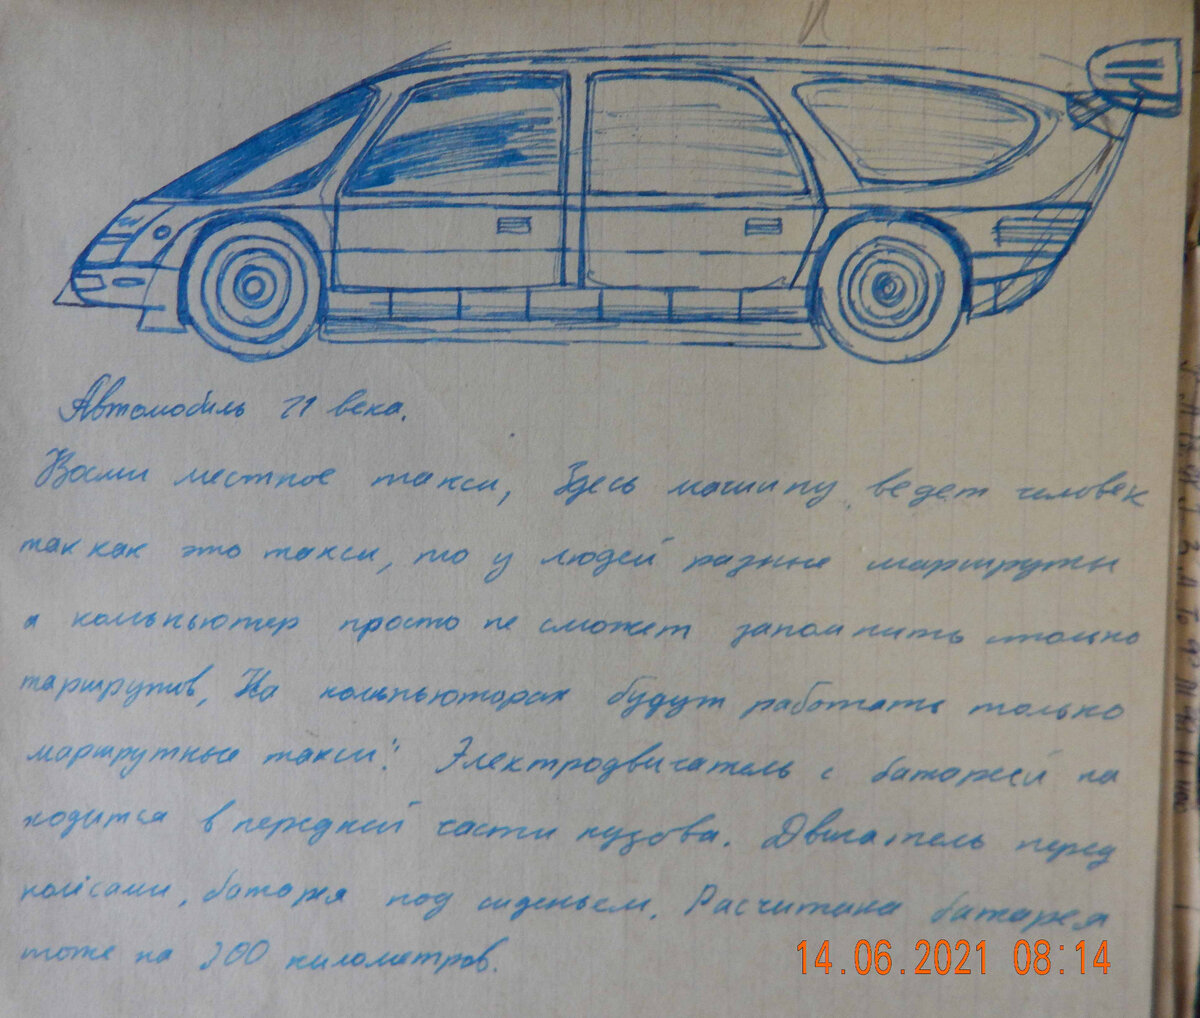 Автомобиль 21 века.
Восми местное такси, Здесь машину ведет человек
так как это такси, то у людей разные маршруты
и компьютер просто не сможет запомнить столько
маршрутов, На компьюторах будут работать только
маршрутные такси". Электродвигатель с батареей на
ходится в передней части кузова. Двигатель перед
колёсами, батарея под сиденьем. Расчитана батарея
тоже на 300 километров.
14.06.2021 08:14